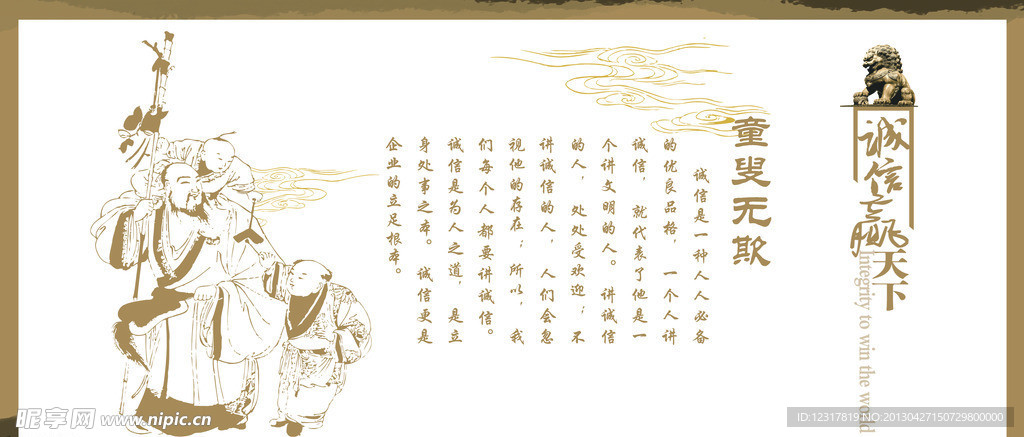 诚信赢天下
Integrity to win the world
童叟无欺
诚信是一种人人必备
的优良品格，一个人讲
诚信，就代表了他是一
个讲文明的人。讲诚信
的人，处处受欢迎；不
讲诚信的人，人们会忽
视他的存在；所以，我
们每个人都要讲诚信。
诚信是为人之道，是立
身处事之本。诚信更是
企业的立足根本。
昵享网 www.nipic.cn
ID:12317819 NO:20130427150729800000